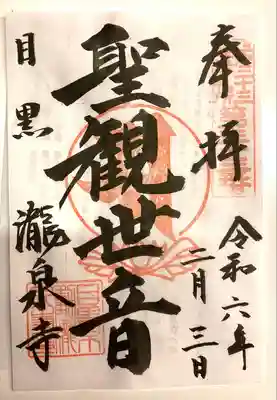 奉拝
令和六年
二月三日
聖観世音
目黒
瀧泉寺